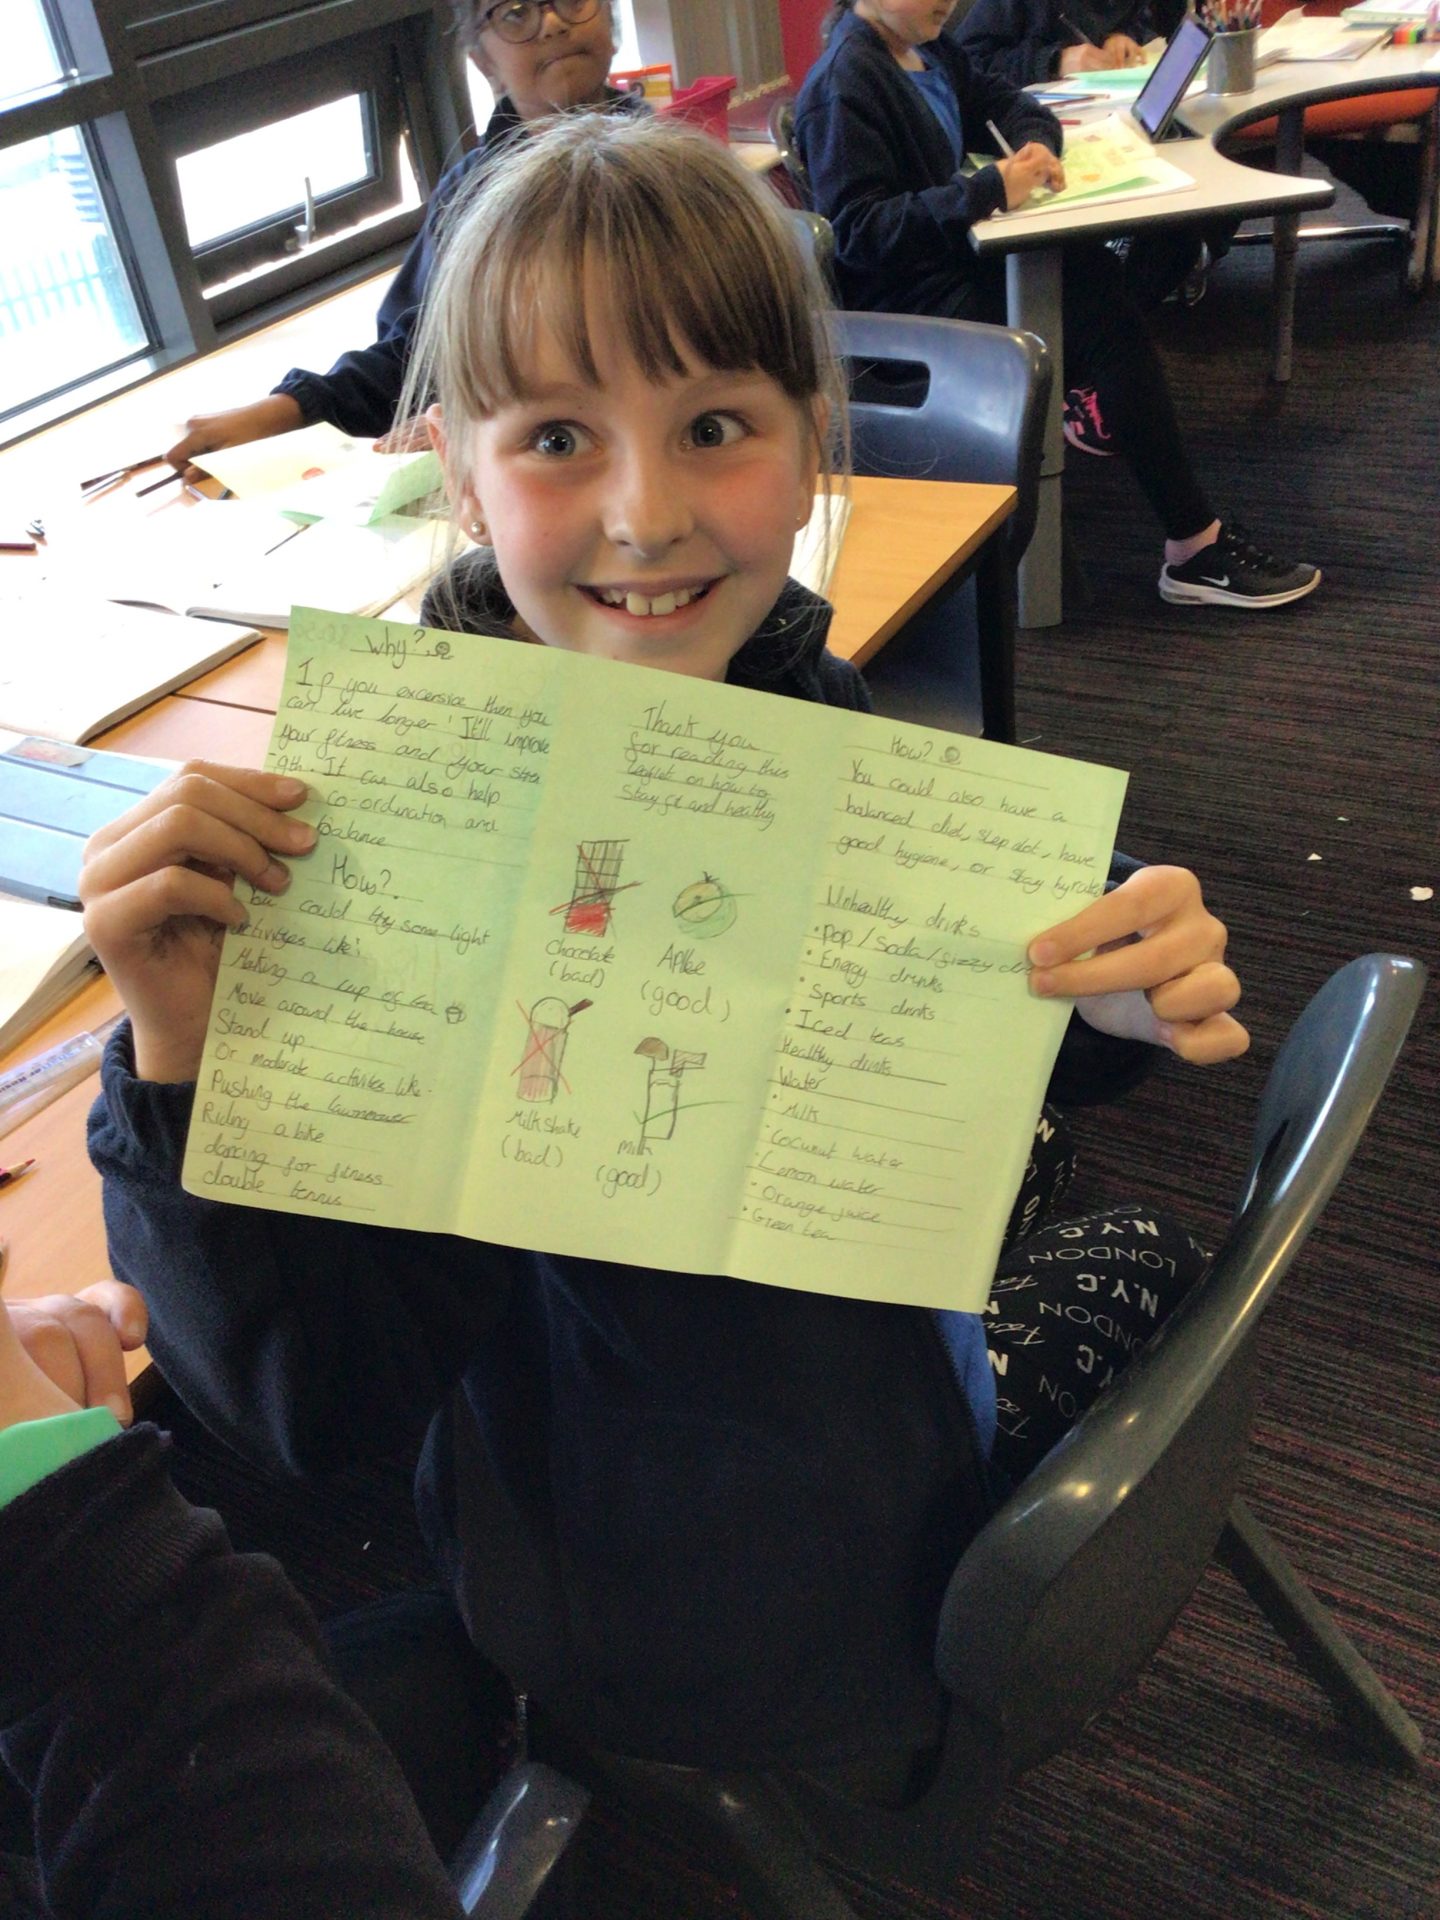 Why?
If you excersice then you
can live longer! It'll improve
your fitness and your stren
-gth. It can also help
co-ordination and
balance
How?
You could try some light
activities like:
Making a cup of tea
Move around the house
Stand up
Or moderate activites like.
Pushing the lawnmower
Riding a bike
dancing for fitness
double tennis
Thank you
for reading this
leaflet on how to
Stay fit and healthy
Chocolate
(bad)
(good)
Milkshake
(bad)
milk
(good)
How?
You could also have a
balanced diet, sleep alot, have
good hygiene, or stay hyrated
Unhealthy drinks
• Pop / Soda / fizzy
• Energy drinks
• Sports drinks
• Iced teas
Healthy drinks
Water
• Milk
• Cocunut water
• Lemon water
• Orange juice
• Green tea
N.Y.C
LONDON
N.Y.C
LONDON